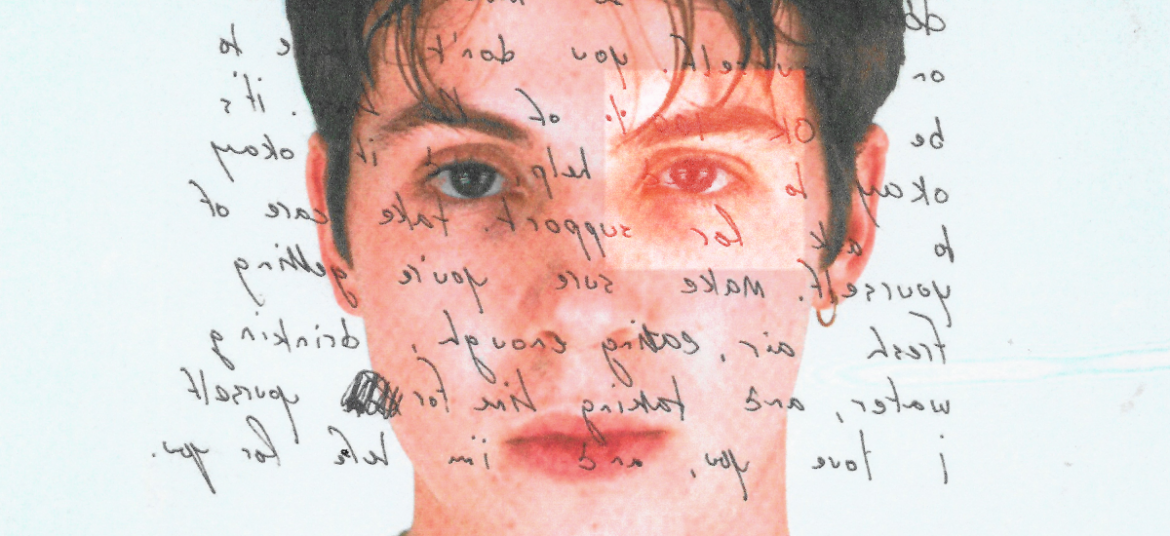 do
or yourself. you don't to
be OK 100% of the . it's
okay to help, it okay
to ask for support. take care of
yourself. make sure you're getting
fresh air, eating enough, drinking
water, and taking time for yourself
i love you, and i'm here for you.